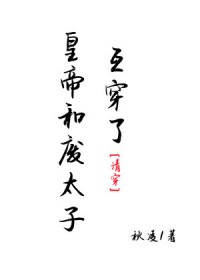 皇帝和废太子
互穿了
【清穿】
秋凌/著